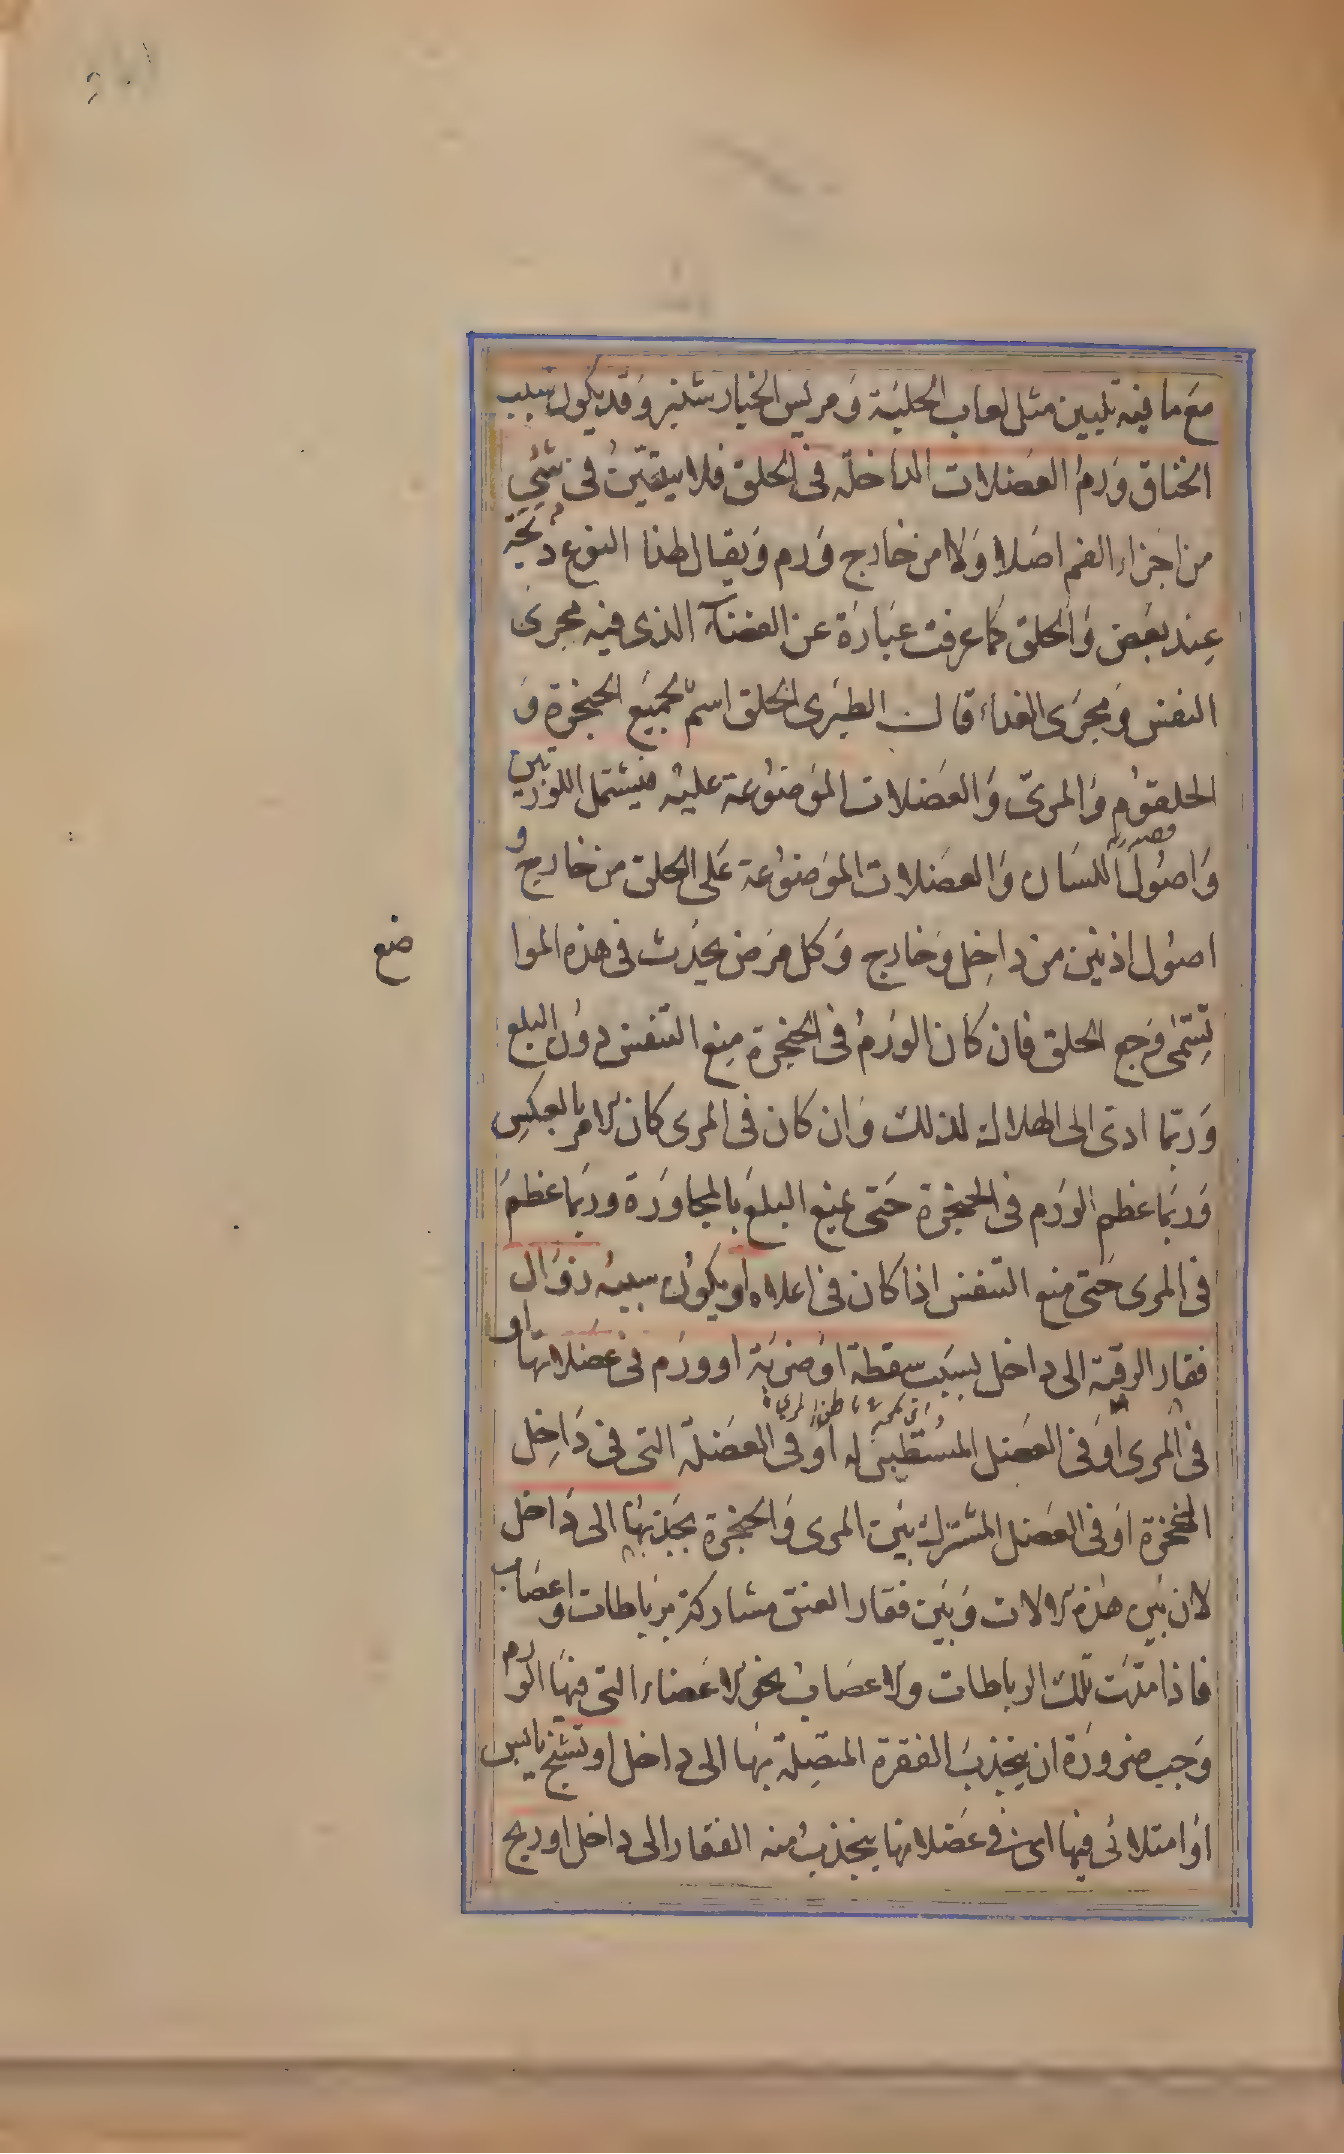 مع ما فيه تليين مثل لعاب الحلبة و مريس الخيار شنبر وقد يكون سبب
الخناق ورم العضلات الداخلة في الحلق فلا يتبين في شئ
من اجزاء الفم اصلا ولا من خارج ورم ويقال لهذا النوع ذبحة
عند بعض والحلق كما عرفت عبارة عن الفضاء الذى فيه مجرى
النفس ومجرى الغذاء قال الطبرى الحلق اسم لجميع الحنجرة و
الحلقوم والمرئ والعضلات الموضوعة عليه فيشتمل اللوزتين
واصول اللسان والعضلات الموضوعة على الحلق من خارج و
اصول اذنين من داخل وخارج وكل مرض يحدث في هذه الموا
ضع
تسمى وجع الحلق فان كان الورم في الحنجرة منع التنفس دون البلع
وربما ادى الى الهلاك لذلك وان كان في المرى كان الامر بالعكس
وربما عظم الورم في الحنجرة حتى يمنع البلع بالمجاورة وربما عظم
في المرى حتى منع التنفس اذا كان في اعلاه او يكون سببه زوال
فقار الرقبة الى داخل بسبب سقطة او ضربة او ورم في عضلاتها او
في المرى او في العضل المستبطن له او في العضلة التى في داخل
الحنجرة او في العضل المشترك بين المرى والحنجرة يجذبها الى داخل
لان بين هذه الالات وبين فقار العنق مشاركة برباطات واعصاب
فاذا امتدت تلك الرباطات والاعصاب نحو الاعضاء التى فيها الورم
وجب ضرورة ان ينجذب الفقرة المتصلة بها الى داخل او تشنج يابس
او امتلائى فيها اى في عضلاتها ينجذب منه الفقار الى داخل او ريح